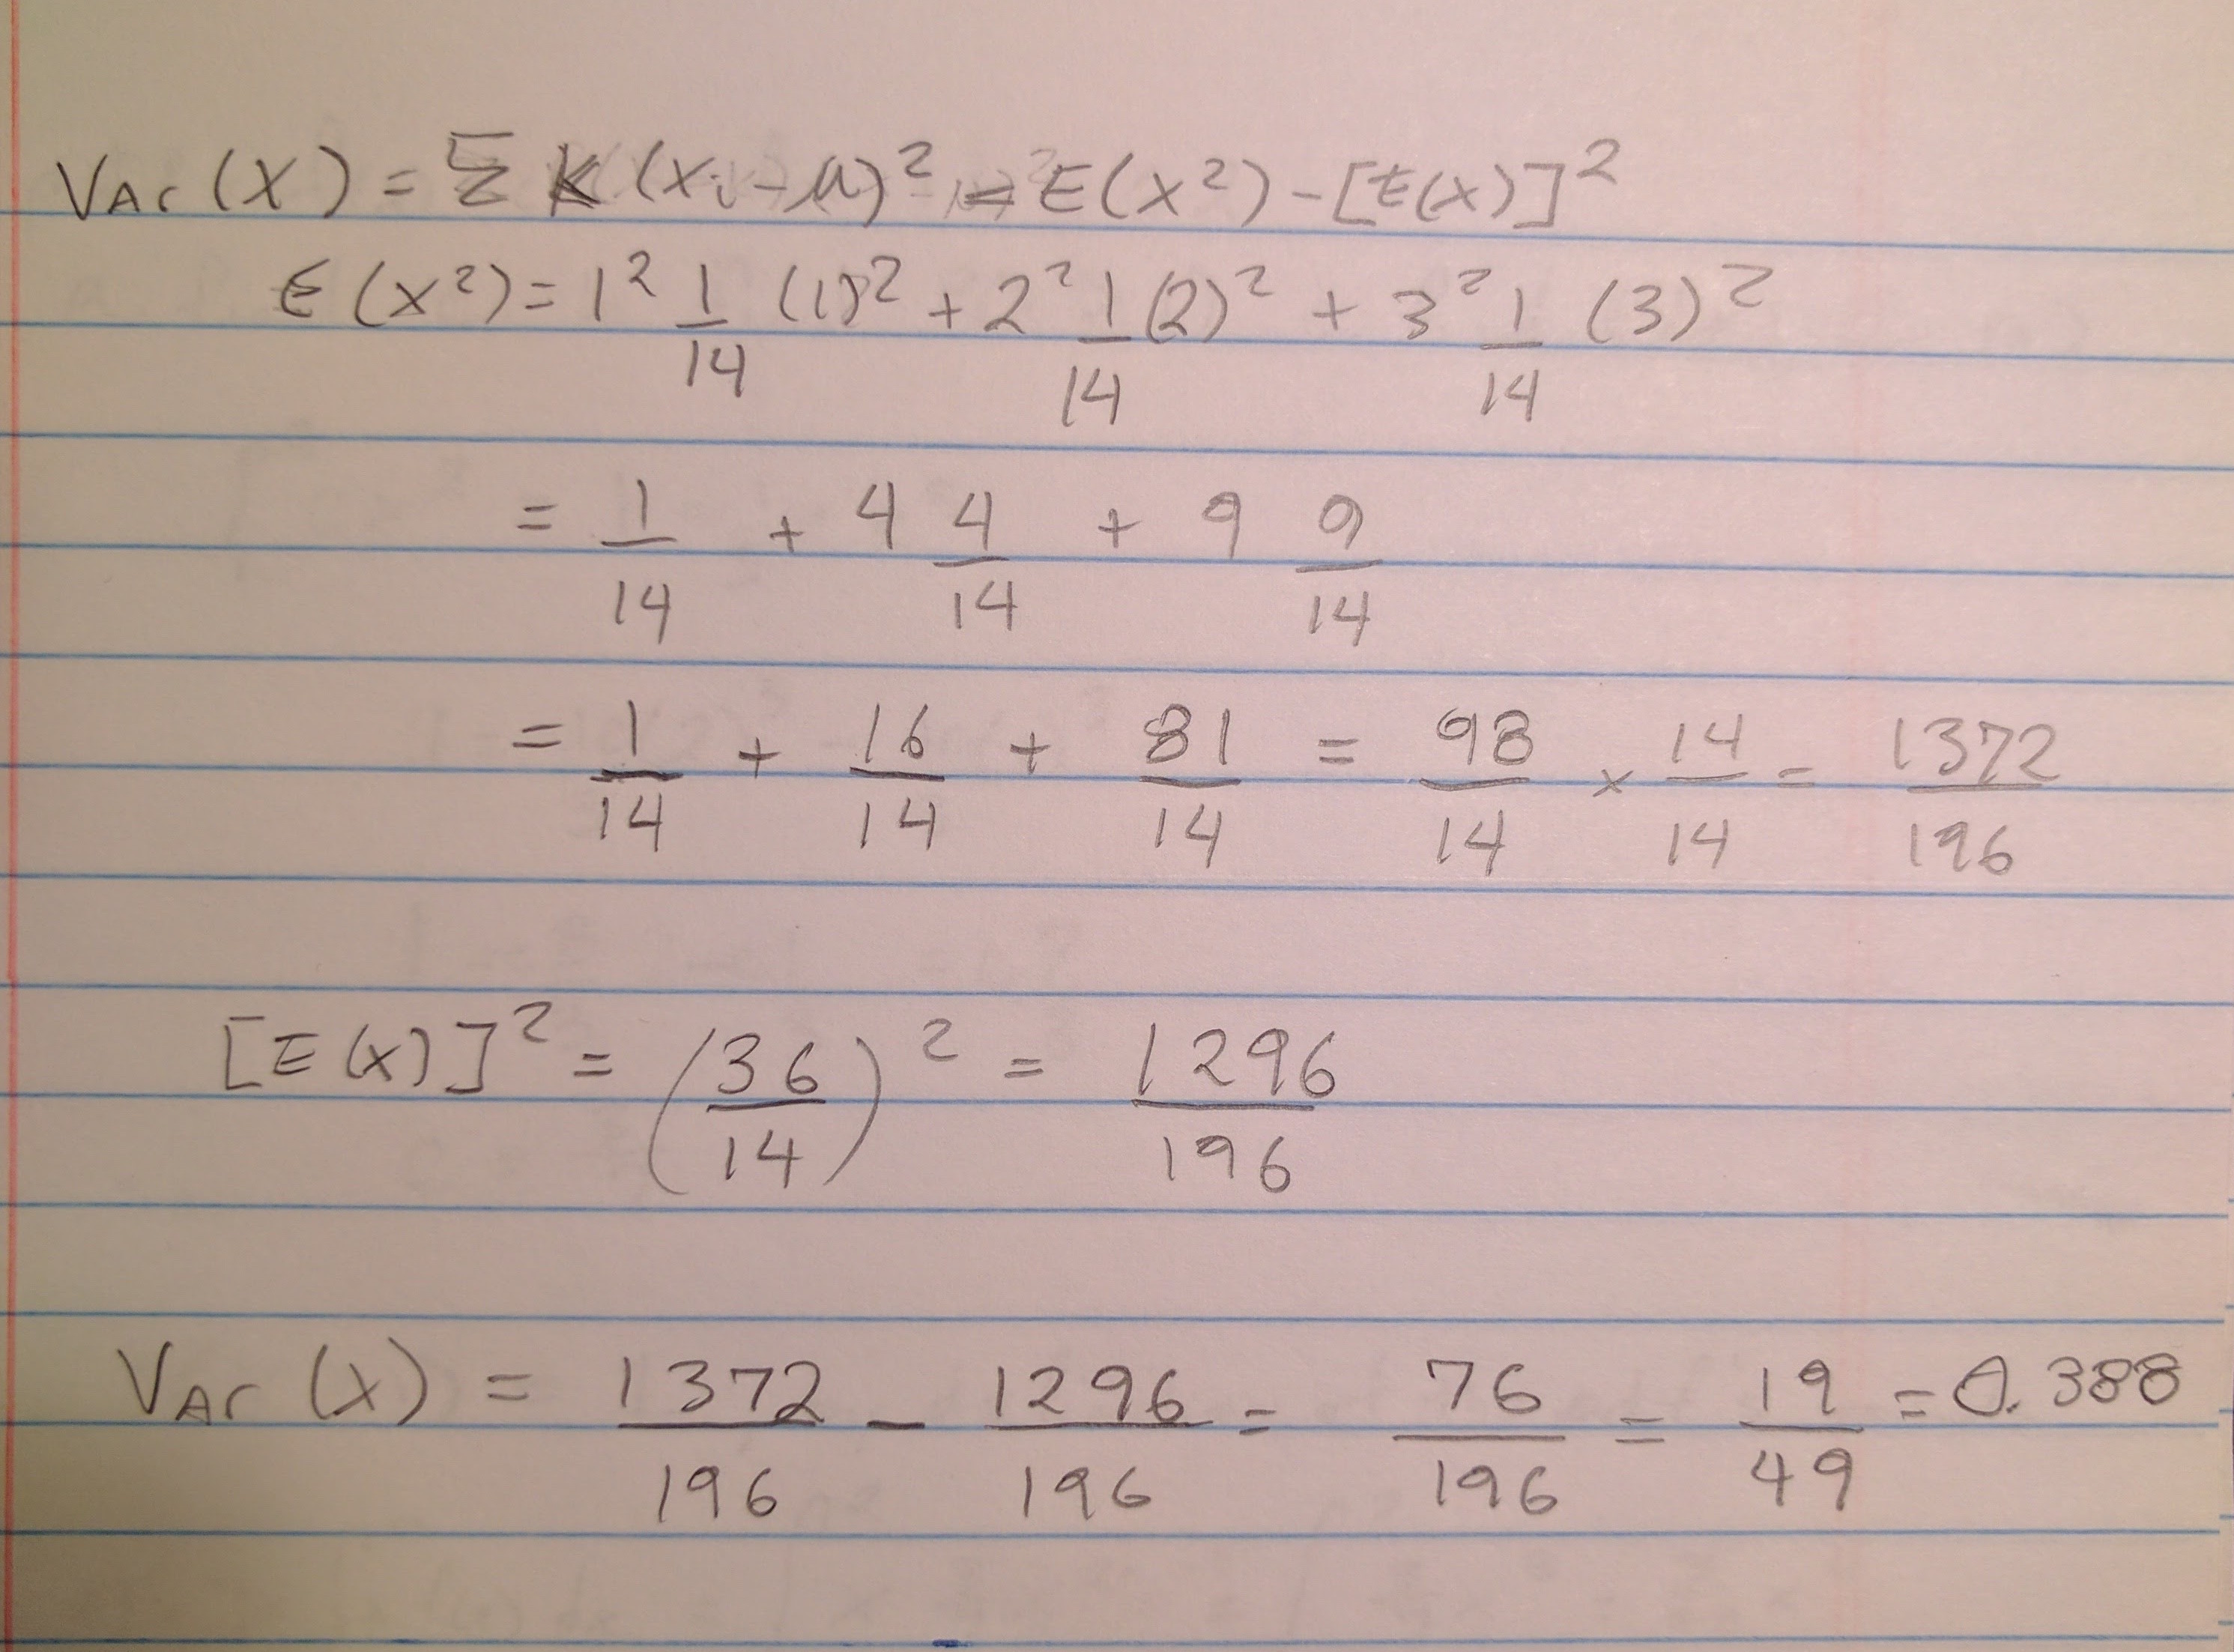 Var(X) = Σ K (xᵢ - μ)² = E(X²) - [E(X)]²
E(X²) = 1² 1/14 (1)² + 2² 1/14 (2)² + 3² 1/14 (3)²
= 1/14 + 4 4/14 + 9 9/14
= 1/14 + 16/14 + 81/14 = 98/14 × 14/14 = 1372/196
[E(X)]² = (36/14)² = 1296/196
Var(X) = 1372/196 - 1296/196 = 76/196 = 19/49 = 0.388